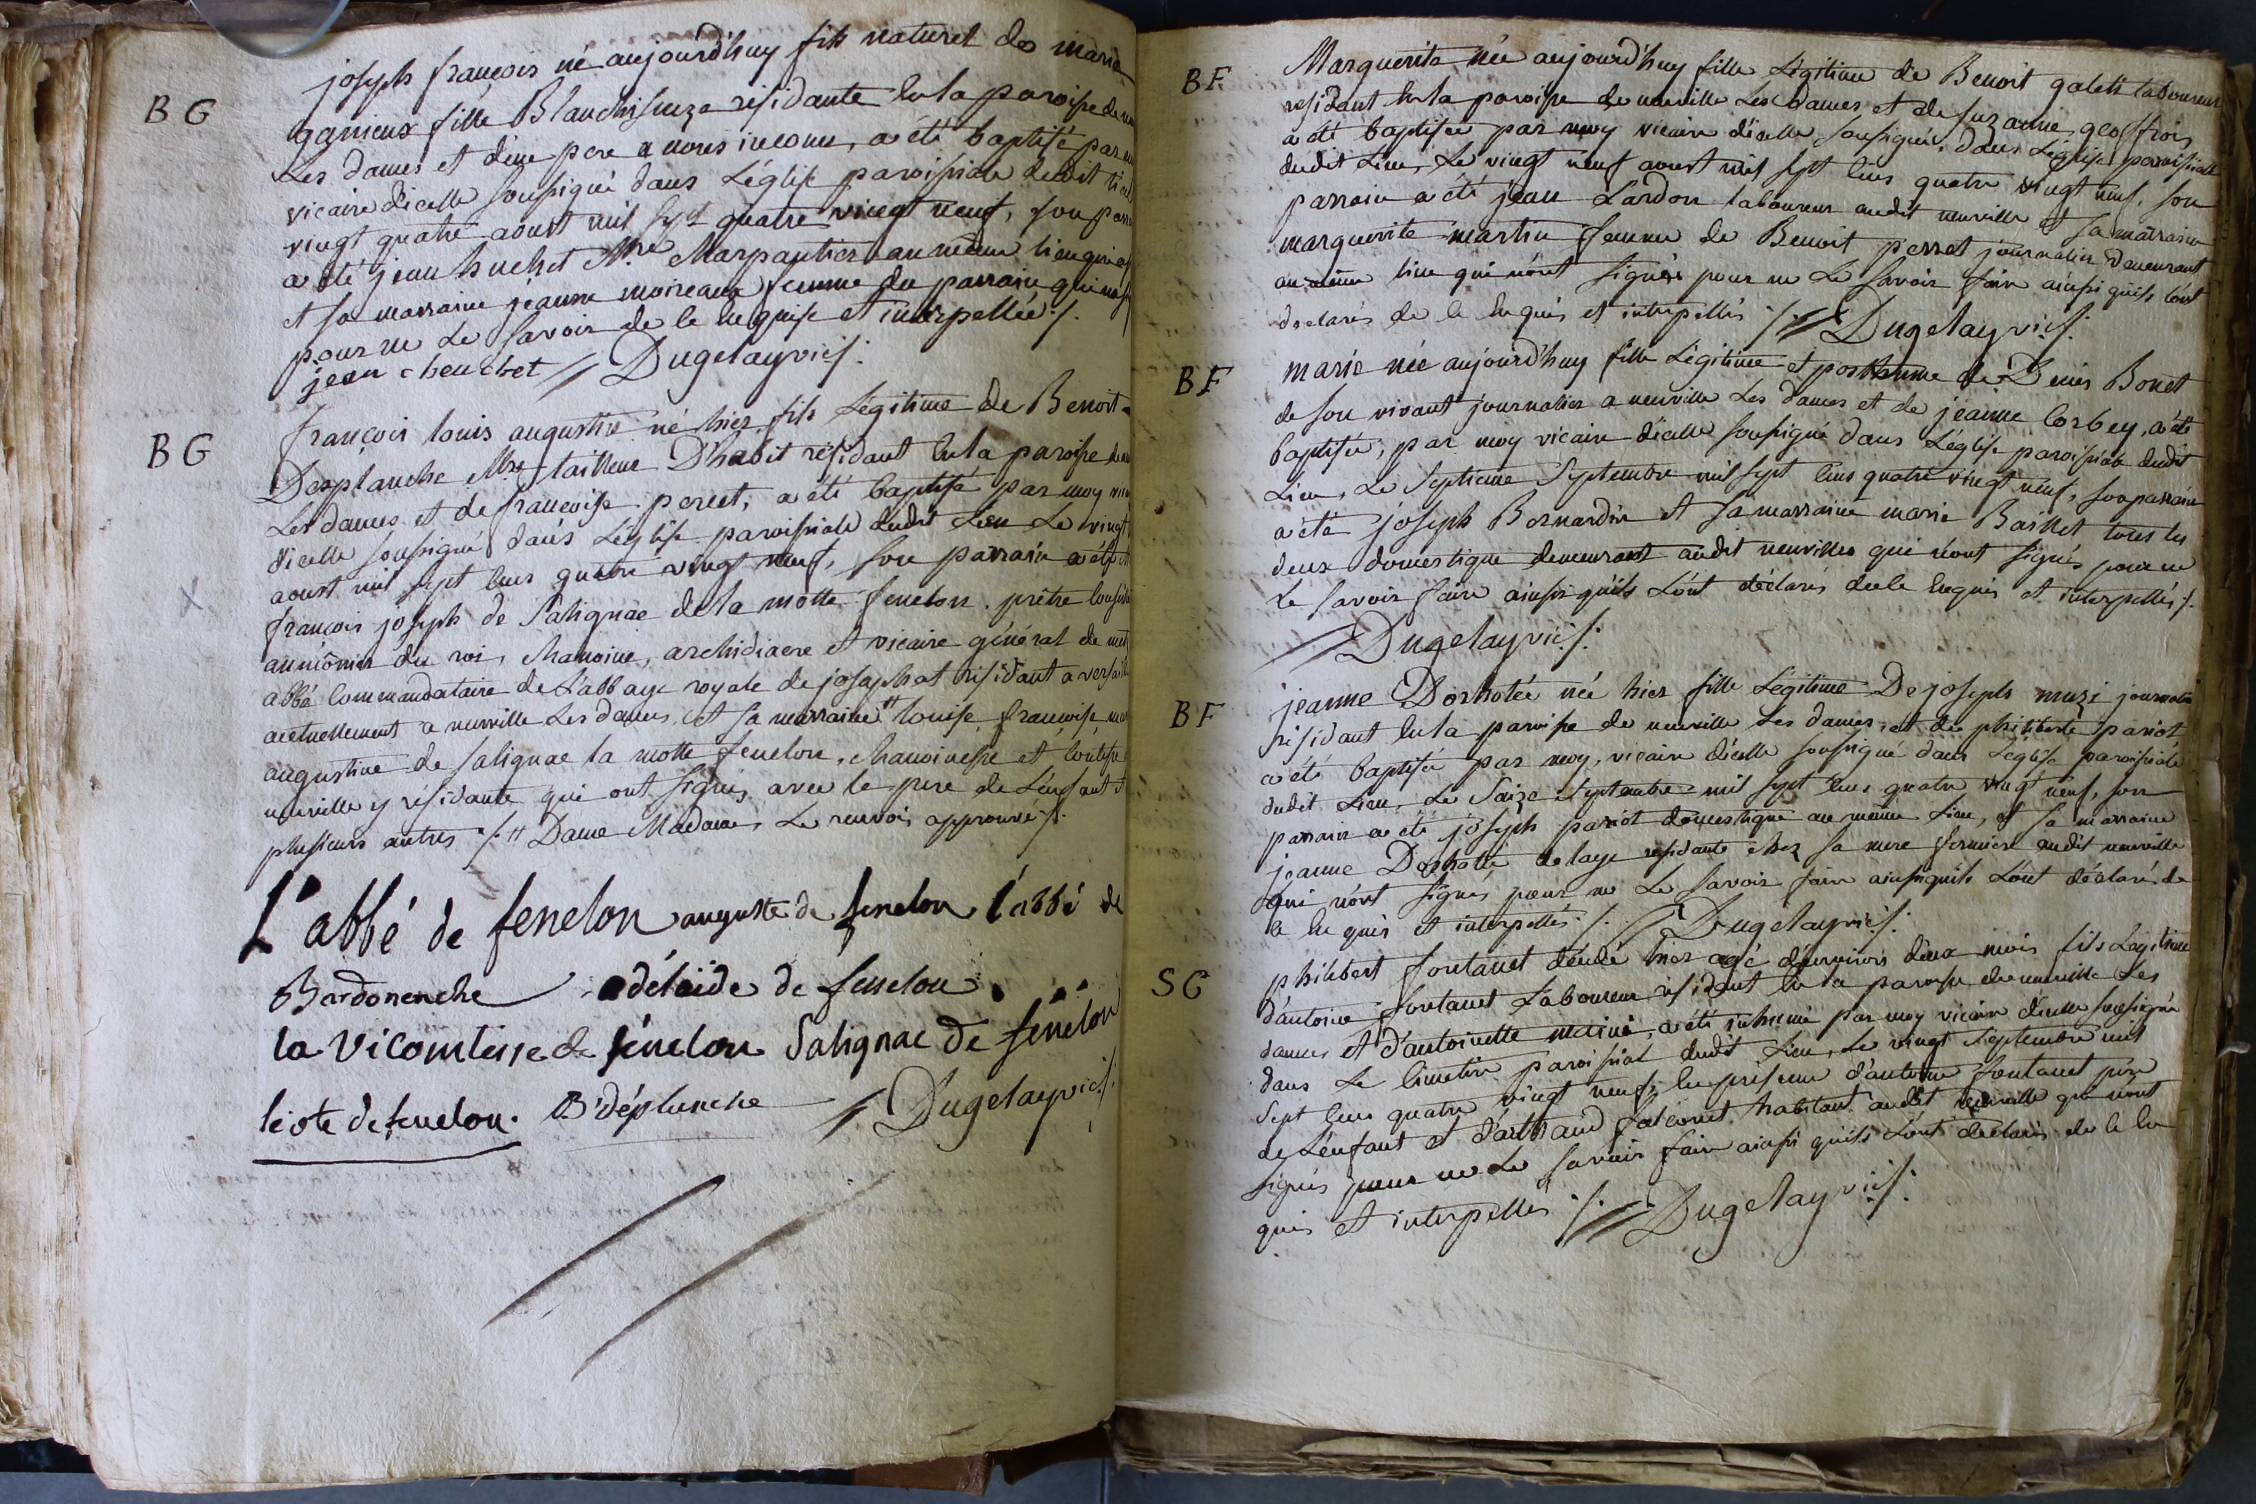 BG
joseph françois né aujourd'huy fils naturel de marie
ganieux fille Blanchisseuze résidante en la paroisse de
Les dames et d'une pere a nous inconnu, a été baptisé par
vicaire d'icelle soussigné dans L'église paroissiale dudit lieu
vingt quatre aoust mil sept quatre vingt neuf, son parrain
a été jean huchet Mre Charpantier au même lieu qui a
et sa marraine jeanne moireaux femme du parrain qui na
pour ne Le savoir de ce enquise et interpellée ./.
jean cheuchet // Dugelay vic ./.
BG
françois louis augustin né hier, fils Légitime de Benoit
Desplanche Mre tailleur D'habit résidant en la paroisse de
Les dames et de françoise perret, a été baptisé par moy
d'icelle soussigné dans L'église paroissiale dudit Lieu Le vingt
aoust mil sept cens quatre vingt neuf, son parrain a été
françois joseph de Salignac de la motte fenelon, prêtre
aumônier du roi, chanoine, archidiacre et vicaire général de
abbé Commandataire de L'abbaye royale de josaphat résidant a
actuellement a neuville Les dames, et sa marraine # louise françoise
augustine de salignac la motte fenelon, chanoinesse et Comtesse
neuville y résidante qui ont signés avec le pere de L'enfant et
plusieurs autres ./. # Dame Madame, Le renvoi approuvé ./.
L'abbé de fenelon auguste de fenelon l'abbé de
Bardonenche adélaïde de fenelon
la Vicomtesse de fénelon Salignac de fenelon
le cte de fenelon. B. déplanche // Dugelay vic ./.
BF
Marguerite née aujourd'huy fille Légitime de Benoit galet laboureur
résidant en la paroisse de neuville Les dames et de suzanne geoffroy
a été baptisée par moy vicaire d'icelle soussigné, dans L'église paroissiale
dudit Lieu, Le vingt neuf aoust mil sept cens quatre vingt neuf, son
parrain a été jean Lardon laboureur audit neuville et sa marraine
marguerite martin femme de Benoit perret journalier demeurant
au même lieu qui n'ont signés pour ne Le savoir faire ainsi qu'ils l'ont
declarés de ce enquis et interpellés ./. // Dugelay vic ./.
BF
marie née aujourd'huy fille Légitime et posthume de Denis Bonet
de son vivant journalier a neuville Les dames et de jeanne Corbey, a été
baptisée, par moy vicaire d'icelle soussigné dans L'église paroissiale dudit
Lieu, Le Septieme Septembre mil sept cens quatre vingt neuf, son parrain
a été joseph Bernardin et sa marraine marie Baillet tous les
deux domestique demeurant audit neuville qui n'ont signés pour ne
Le savoir faire ainsi qu'ils L'ont déclarés de ce enquis et interpellés ./.
// Dugelay vic ./.
BF
jeanne Dorhotée née hier fille Légitime De joseph muzi journalier
résidant en la paroisse de neuville Les dames, et de philiberte pariot
a été baptisée par moy, vicaire d'icelle soussigné dans L'église paroissiale
dudit Lieu, Le Saize Septembre mil sept cens quatre vingt neuf, son
parrain a été joseph pariot domestique au même Lieu, et sa marraine
jeanne Dorhotée delaye résidante chez sa mere fermiere audit neuville
qui n'ont signés pour ne Le savoir faire ainsi qu'ils L'ont déclarés de
ce enquis et interpellés ./. // Dugelay vic ./.
SG
philibert fontanet décédé hier agé d'environ deux mois fils Légitime
d'antoine fontanet Laboureur résidant en la paroisse de neuville Les
dames et d'antoinette , a été inhumé par moy vicaire d'icelle soussigné
dans Le Cimetière paroissial dudit Lieu, Le vingt Septembre mil
Sept cens quatre vingt neuf, en présence d'antoine fontanet père
de L'enfant et falconet habitant audit neuville qui n'ont
signés pour ne Le savoir faire ainsi qu'ils L'ont declarés de ce en
quis et interpellés ./. // Dugelay vic ./.